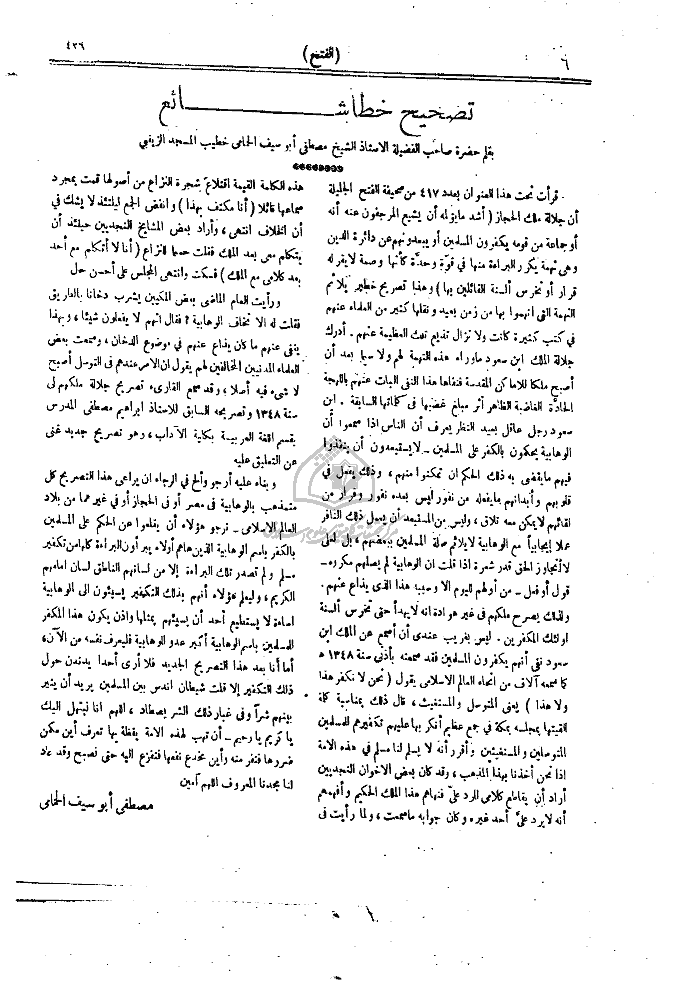 ٦
(الفتح)
٤٢٦
تصحيح خطأ شائع
بقلم حضرة صاحب الفضيلة الاستاذ الشيخ مصطفى أبو سيف الحامى خطيب المسجد الزينبي
قرأت تحت هذا العنوان بعدد ٤١٧ من صحيفة الفتح الجليلة
أن جلالة ملك الحجاز ( أشد مايؤلمه أن يشيع المرجفون عنه أنه
أو جماعة من قومه يكفرون المسلمين أو يبعدونهم عن دائرة الدين
وهى تهمة يكرر البراءة منها في قوة وحدة كأنها وصمة لا يقر له
قرار أو تخرس ألسنة القائلين بها ) وهذا تصريح خطير يلائم
التهمة التى اتهموا بها من زمن بعيد ونقلها كثير من العلماء عنهم
في كتب كثيرة كانت ولا تزال تذيع تلك العظيمة عنهم . أدرك
جلالة الملك ابن سعود ماوراء هذه التهمة لهم ولا سيما بعد أن
أصبح ملكا للاماكن المقدسة فنفاها هذا النفى البات عنهم باللهجة
الحادة الغاضبة الظاهر أثر مبلغ غضبها في كلماتها السابقة . ابن
سعود رجل عاقل بعيد النظر يعرف أن الناس اذا سمعوا أن
الوهابية يحكون بالكفر على المسلمين ــ لا يستبعدون أن ينفذوا
فيهم مايقضى به ذلك الحكم ان تمكنوا منهم ، وذلك يفعل في
قلوبهم وأبدانهم مايفعله من نفور ليس بعده نفور وفرار من
لقائهم لا يمكن معه تلاق ، وليس من المستبعد أن يعمل ذلك النافر
عملا إيجابياً مع الوهابية لا يلائم صلة المسلمين ببعضهم ، بل لعلى
لا أتجاوز الحق قدر شعرة اذا قلت ان الوهابية لم يصلهم مكروه ــ
قول أو فعل ــ من أولهم لليوم الا وسببه هذا الذى يذاع عنهم .
ولذلك يصرح ملكهم فى غير هوادة انه لا يهدأ حتى تخرس ألسنة
اولئك المكفرين . ليس بغريب عندى أن أسمع عن الملك ابن
سعود نفى أنهم يكفرون المسلمين فقد سمعته بأذنى سنة ١٣٤٨ ه
كما سمعه آلاف من انحاء العالم الاسلامى يقول ( نحن لا نكفر هذا
ولا هذا ) يعنى المتوسل والمستغيث ، قال ذلك بمناسبة كلمة
القيتها بمجلسه بمكة في جمع عظيم أنكر بها عليهم تكفيرهم للمسلمين
المتوسلين والمستغيثين وأقرر أنه لا يسلم لنا مسلم في هذه الامة
اذا نحن أخذنا بهذا المذهب ، وقد كان بعض الاخوان النجديين
أراد أن يقاطع كلامى للرد علىّ فنهاهم هذا الملك الحكيم وأفهمهم
أنه لا يرد علىّ أحد غيره وكان جوابه ماسمعت ، ولما رأيت فى
هذه الكلمة القيمة اقتلاع شجرة النزاع من أصولها قمت بمجرد
سماعها قائلا ( أنا مكتف بهذا ) وانفض الجمع ليلتئذ لا يشك في
أن الخلاف انتهى ، وأراد بعض المشايخ النجديين حينئذ أن
يتكلم معى بعد الملك فقلت حسما للنزاع ( أنا لا أتكلم مع أحد
بعد كلامى مع الملك ) فسكت وانتهى المجلس على أحسن حال
ورأيت العام الماضى بعض المكيين يشرب دخانا بالطريق
فقلت له الا تخاف الوهابية ؟ فقال انهم لا يفعلون شيئا ، وبهذا
ينفى عنهم ما كان يذاع عنهم في موضوع الدخان ، وسمعت بعض
العلماء المدنيين المخالفين لهم يقول ان الامر عندهم فى التوسل أصبح
لا شىء فيه أصلا ، وقد سمع القارىء تصريح جلالة ملكهم لى
سنة ١٣٤٨ وتصريحه السابق للاستاذ ابراهيم مصطفى المدرس
بقسم اللغة العربية بكلية الآداب ، وهو تصريح جديد غنى
عن التعليق عليه
وبناء عليه أرجو وألح في الرجاء ان يراعى هذا التصريح كل
متمذهب بالوهابية فى مصر أو فى الحجاز أو في غيرهما من بلاد
العالم الاسلامى ـ نرجو هؤلاء أن يقلعوا عن الحكم على المسلمين
بالكفر باسم الوهابية الذين هاهم أولاء يبرأون البراءة كلها من تكفير
مسلم ولم تصدر تلك البراءة إلا من لسانهم الناطق لسان امامهم
الكريم ، وليعلم هؤلاء أنهم بذلك التكفير يسيئون الى الوهابية
اساءة لا يستطيع أحد أن يسيئهم بمثلها واذن يكون هذا المكفر
للمسلمين باسم الوهابية أكبر عدو الوهابية فليعرف نفسه من الآن،
أما أنا بعد هذا التصريح الجديد فلا أرى أحدا يدندن حول
ذلك التكفير إلا قلت شيطان اندس بين المسلمين يريد أن يثير
بينهم شراً وفى غبار ذلك الشر يصطاد ، اللهم انا نبتهل اليك
يا كريم يا رحيم ــ أن تهب لهذه الامة يقظة بها تعرف أين مكمن
ضررها فتفر منه وأين مخدع نفعها فتفزع اليه حتى تصبح وقد عاد
لنا مجدنا المعروف اللهم آمين
مصطفى أبو سيف الحامى